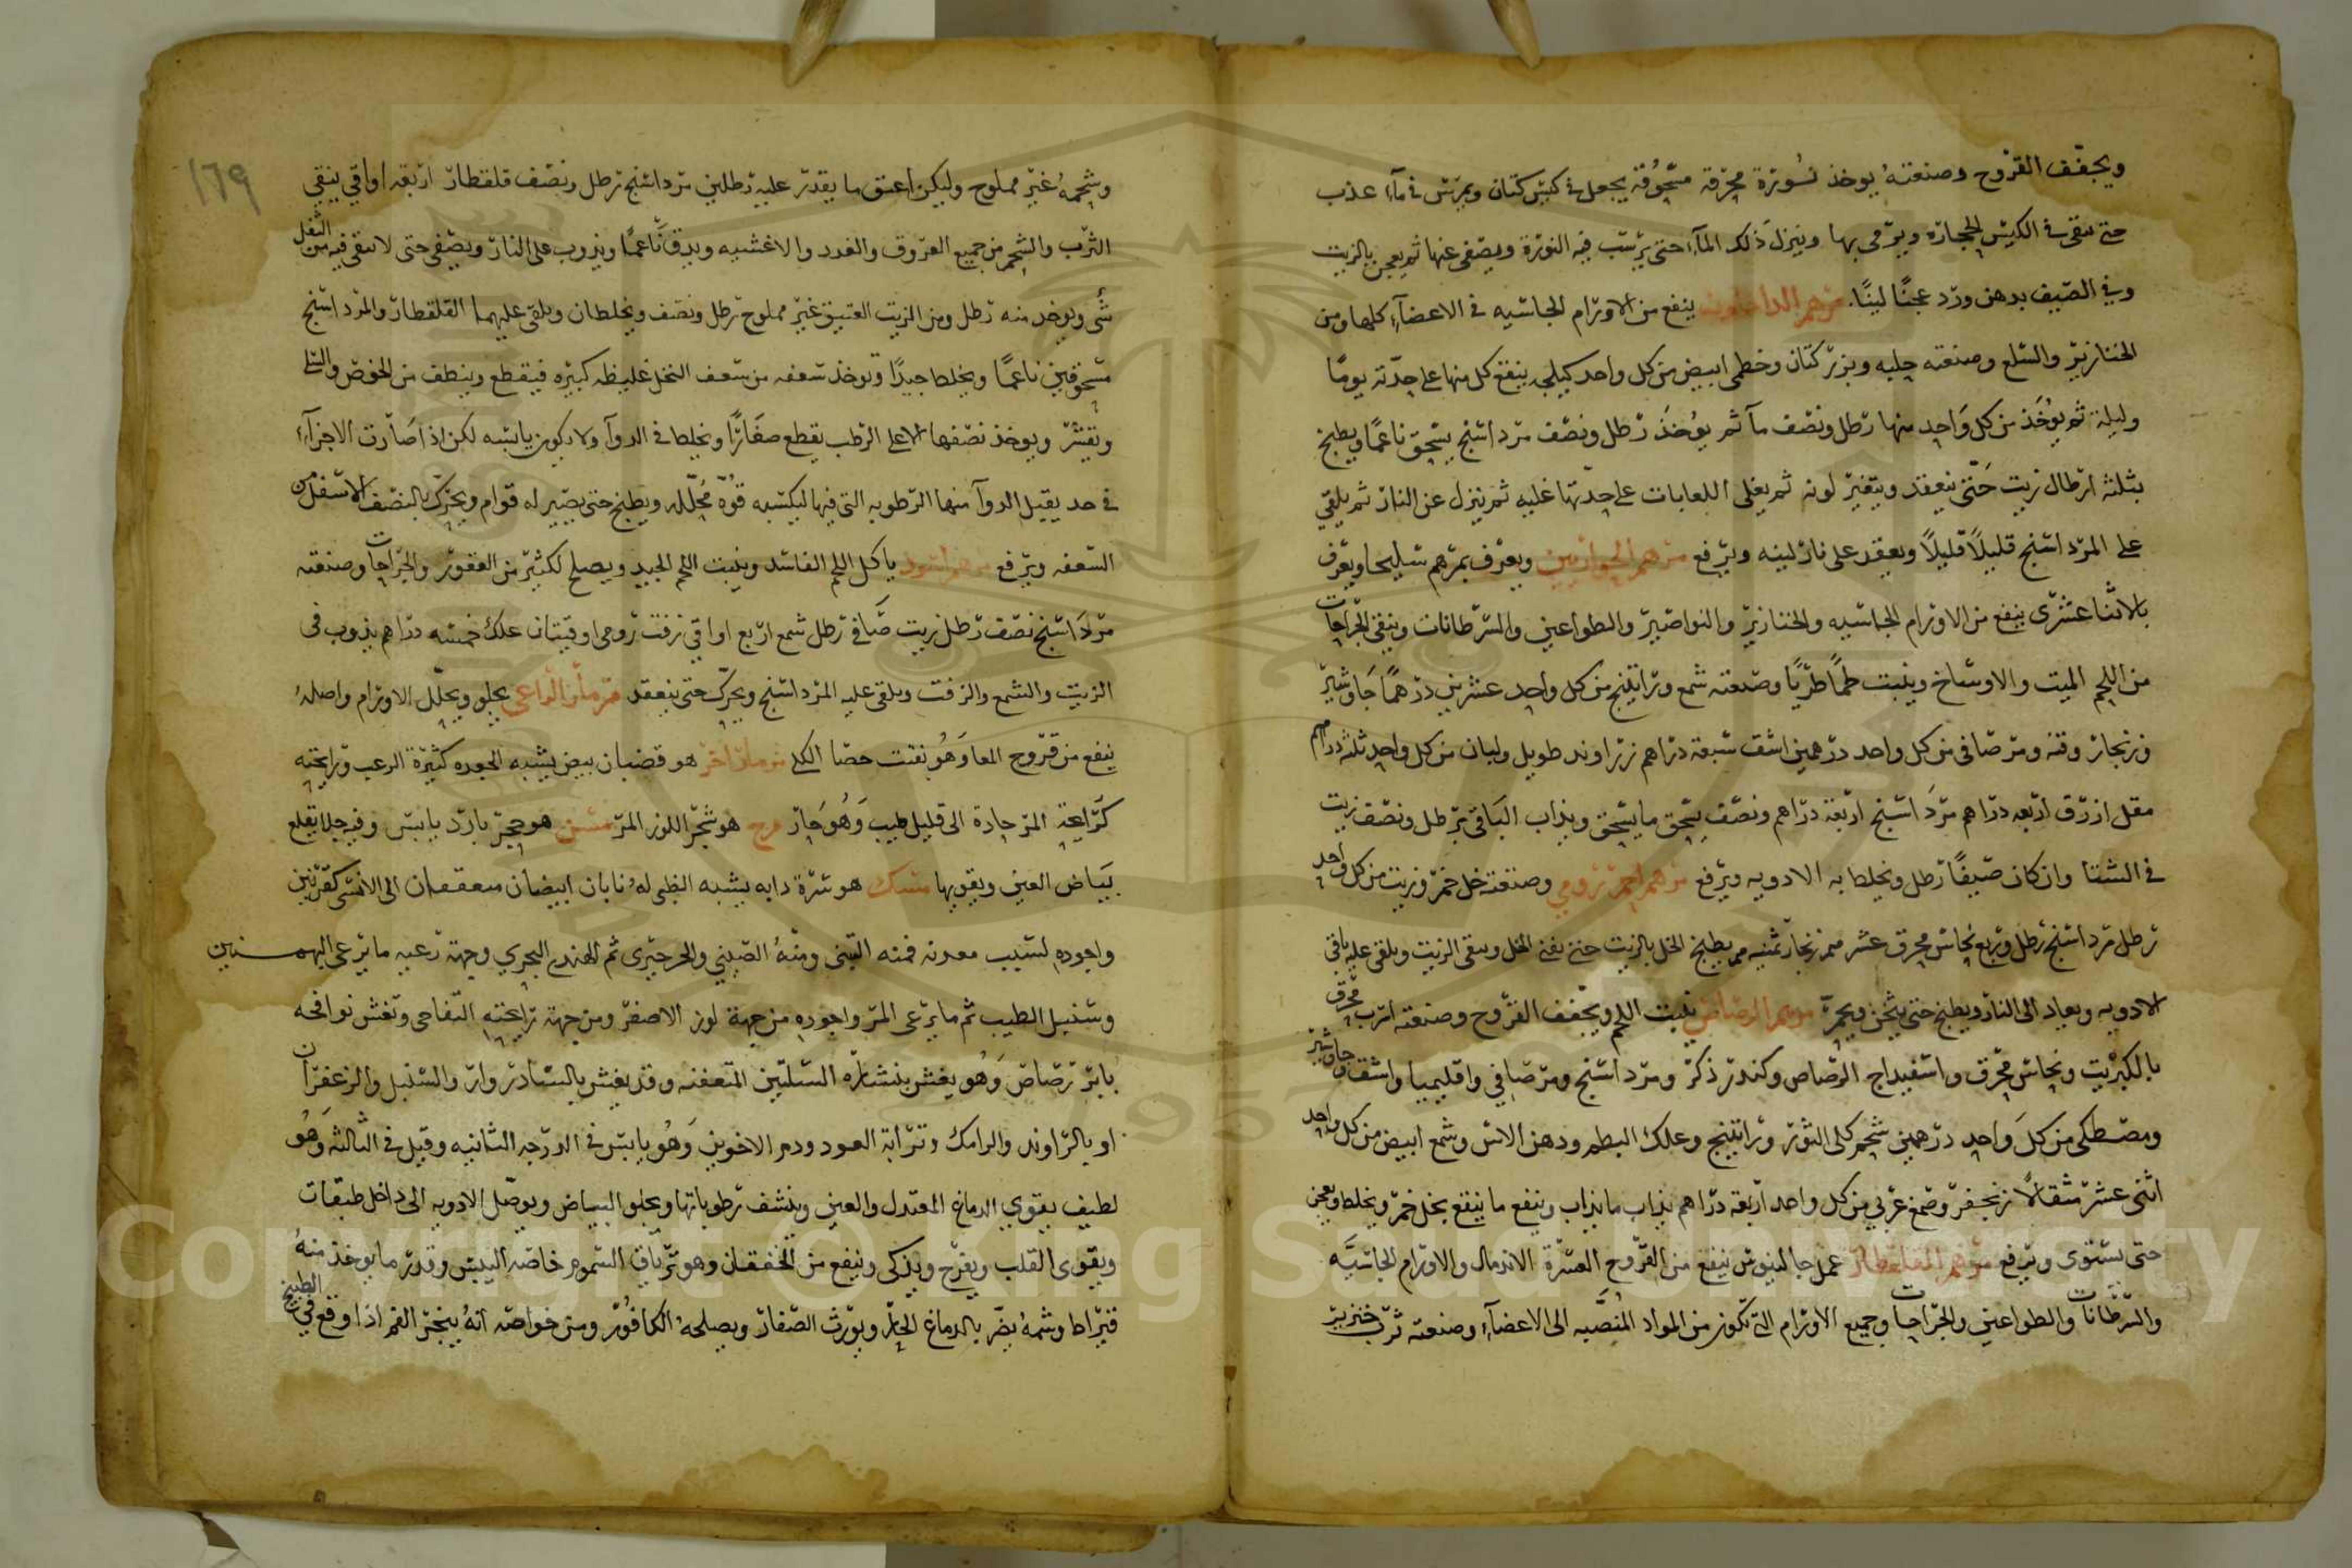 ويجفف القروح وصنعته يوخذ نورة محرقة مسحوقة يجعل في كيس كتان ويمرس في مآء عذب
حتى تبقى في الكيس الحجارة ويرمى بها وينزل ذلك المآء حتى يرسب فيه النورة ويصفى عنها ثم يعجن بالزيت
وفي الصيف بدهن ورد عجنًا لينًا. مرهم الداخليون ينفع من الاورام الجاسيه في الاعضآء كلها ومن
الخنازير والسلع وصنعته حلبه وبزر كتان وخطمى ابيض من كل واحد كيلجه ينقع كل منها على حدته يومًا
وليلة ثم يوخذ من كل واحد منها رطل ونصف مآ ثم يوخذ رطل ونصف مرداسنج يسحق ناعمًا ويطبخ
بثلثه ارطال زيت حتى ينعقد ويتغير لونه ثم يغلى اللعابات على حدتها غليه ثم ينزل عن النار ثم يلقى
على المرداسنج قليلًا قليلًا ويعقد على نار لينه ويرفع مرهم الحواريين ويعرف بمرهم سليحا ويعرف
بالاثناعشرى ينفع من الاورام الجاسيه والخنازير والنواصير والطواعين والسرطانات وينقى الجراحات
من اللحم الميت والاوساخ وينبت لحمًا طريًا وصنعته شمع وراتينج من كل واحد عشرين درهمًا جاوشير
وزنجار وقنه ومر صافى من كل واحد درهمين اشق سبعة دراهم زراوند طويل ولبان من كل واحد ثلثه دراهم
مقل ازرق اربعه دراهم مرداسنج اربعة دراهم ونصف يسحق ما يسحق ويذاب الباقى برطل ونصف زيت
في الشتا وان كان صيفًا رطل ويخلط به الادويه ويرفع مرهم احمر رومي وصنعته خل خمر وزيت من كل واحد
رطل مرداسنج رطل وربع نحاس محرق عشر زنجار ثمنيه يطبخ الخل بالزيت حتى يفنى الخل ويبقى الزيت ويلقى عليه باقى
الادويه ويعاد الى النار ويطبخ حتى يثخن ويحمر مرهم الرصاص ينبت اللحم ويجفف القروح وصنعته اسرب محرق
بالكبريت ونحاس محرق واسفيداج الرصاص وكندر ذكر ومرداسنج ومر صافي واقليميا واشق وجاوشير
ومصطكى من كل واحد درهمين شحم كلى الثور وراتينج وعلك البطم ودهن الآس وشمع ابيض من كل واحد
اثنى عشر مثقالًا زنجفر وصمغ عربي من كل واحد اربعة دراهم يذاب ما يذاب وينقع ما ينقع بخل خمر ويخلط ويعجن
حتى يستوى ويرفع مرهم القلقطار عمل جالينوس ينفع من القروح العسرة الاندمال والاورام الجاسيه
والسرطانات والطواعين والجراحات وجميع الاورام التى تكون من المواد المنصبه الى الاعضآء وصنعته ثرب خنزير
١٦٩
وشحمه غير مملوح وليكن اعتق ما يقدر عليه رطلين مرداسنج رطل ونصف قلقطار اربعه اواقي ينقى
الثرب والشحم من جميع العروق والغدد والاغشيه ويدق ناعمًا ويذوب على النار ويصفى حتى لا تبقى فيه من الثفل
شىء ويوخذ منه رطل ومن الزيت العتيق غير مملوح رطل ونصف ويخلطان ويلقى عليهما القلقطار والمرداسنج
مسحوقين ناعمًا ويخلط جيدًا وتوخذ سعفه من سعف النخل غليظه كبيره فيقطع وينظف من الخوص والسلا
وتقشر ويوخذ نصفها الاعلى الرطب يقطع صغارًا ويخلط في الدوآ ولا يكون يابسه لكن اذا صارت الاجزآء
في حد يقبل الدوآ منها الرطوبه التى فيها ليكسبه قوة محلله ويطبخ حتى يصير له قوام ويحرك بالنصف الاسفل من
السعفه ويرفع مرهم اسود ياكل اللحم الفاسد وينبت اللحم الجيد ويصلح لكثير من العقور والجراحات وصنعته
مرداسنج نصف رطل زيت صافي رطل شمع اربع اواقي زفت رومى اوقيتان علك خمسه دراهم يذوب في
الزيت والشمع والزفت ويلقى عليه المرداسنج ويحرك حتى ينعقد مزمار الراعى يجلو ويحلل الاورام واصله
ينفع من قروح المعا وهو يفتت حصا الكلى مرماز اخر هو قضبان بيض يشبه الجعده كثيرة الرعب ورايحته
كرايحة المر حادة الى قليل طيب وهو حار مرح هو شجر اللوز المر مسن هو حجر بارد يابس وفيه جلا يقلع
بياض العين ويقويها مسك هو سرة دابه يشبه الظبى له نابان ابيضان معقفان الى الانسى كقرنين
واجوده لسبب معدنه فمنه التبتى ومنه الصيني والخرخيرى ثم الهندى البحري وجهة رعيه ما يرعى البهمنين
وسنبل الطيب ثم ما يرعى المر واجوده من جهة لون الاصفر ومن جهة رايحته التفاحى وتغش نوافجه
بابر رصاص وهو يغش بنشارة السلتين المتعفنه وقد يغش بالسادروار والسنبل والزعفران
او بالراوند والرامك وترابة العود ودم الاخوين وهو يابس في الدرجه الثانيه وقيل في الثالثه وهو
لطيف يقوي الدماغ المعتدل والعين وينشف رطوباتها ويجلو البياض ويوصل الادويه الى داخل طبقات
ويقوى القلب ويفرح ويذكى وينفع من الخفقان وهو ترياق السموم خاصه البيش وقدر ما يوخذ منه
قيراط وشمه يضر بالدماغ الحار ويورث الصفار ويصلحه الكافور ومن خواصه انه يبخر الفم اذا وقع في الطبيخ
Copyright © King Saud University
1957